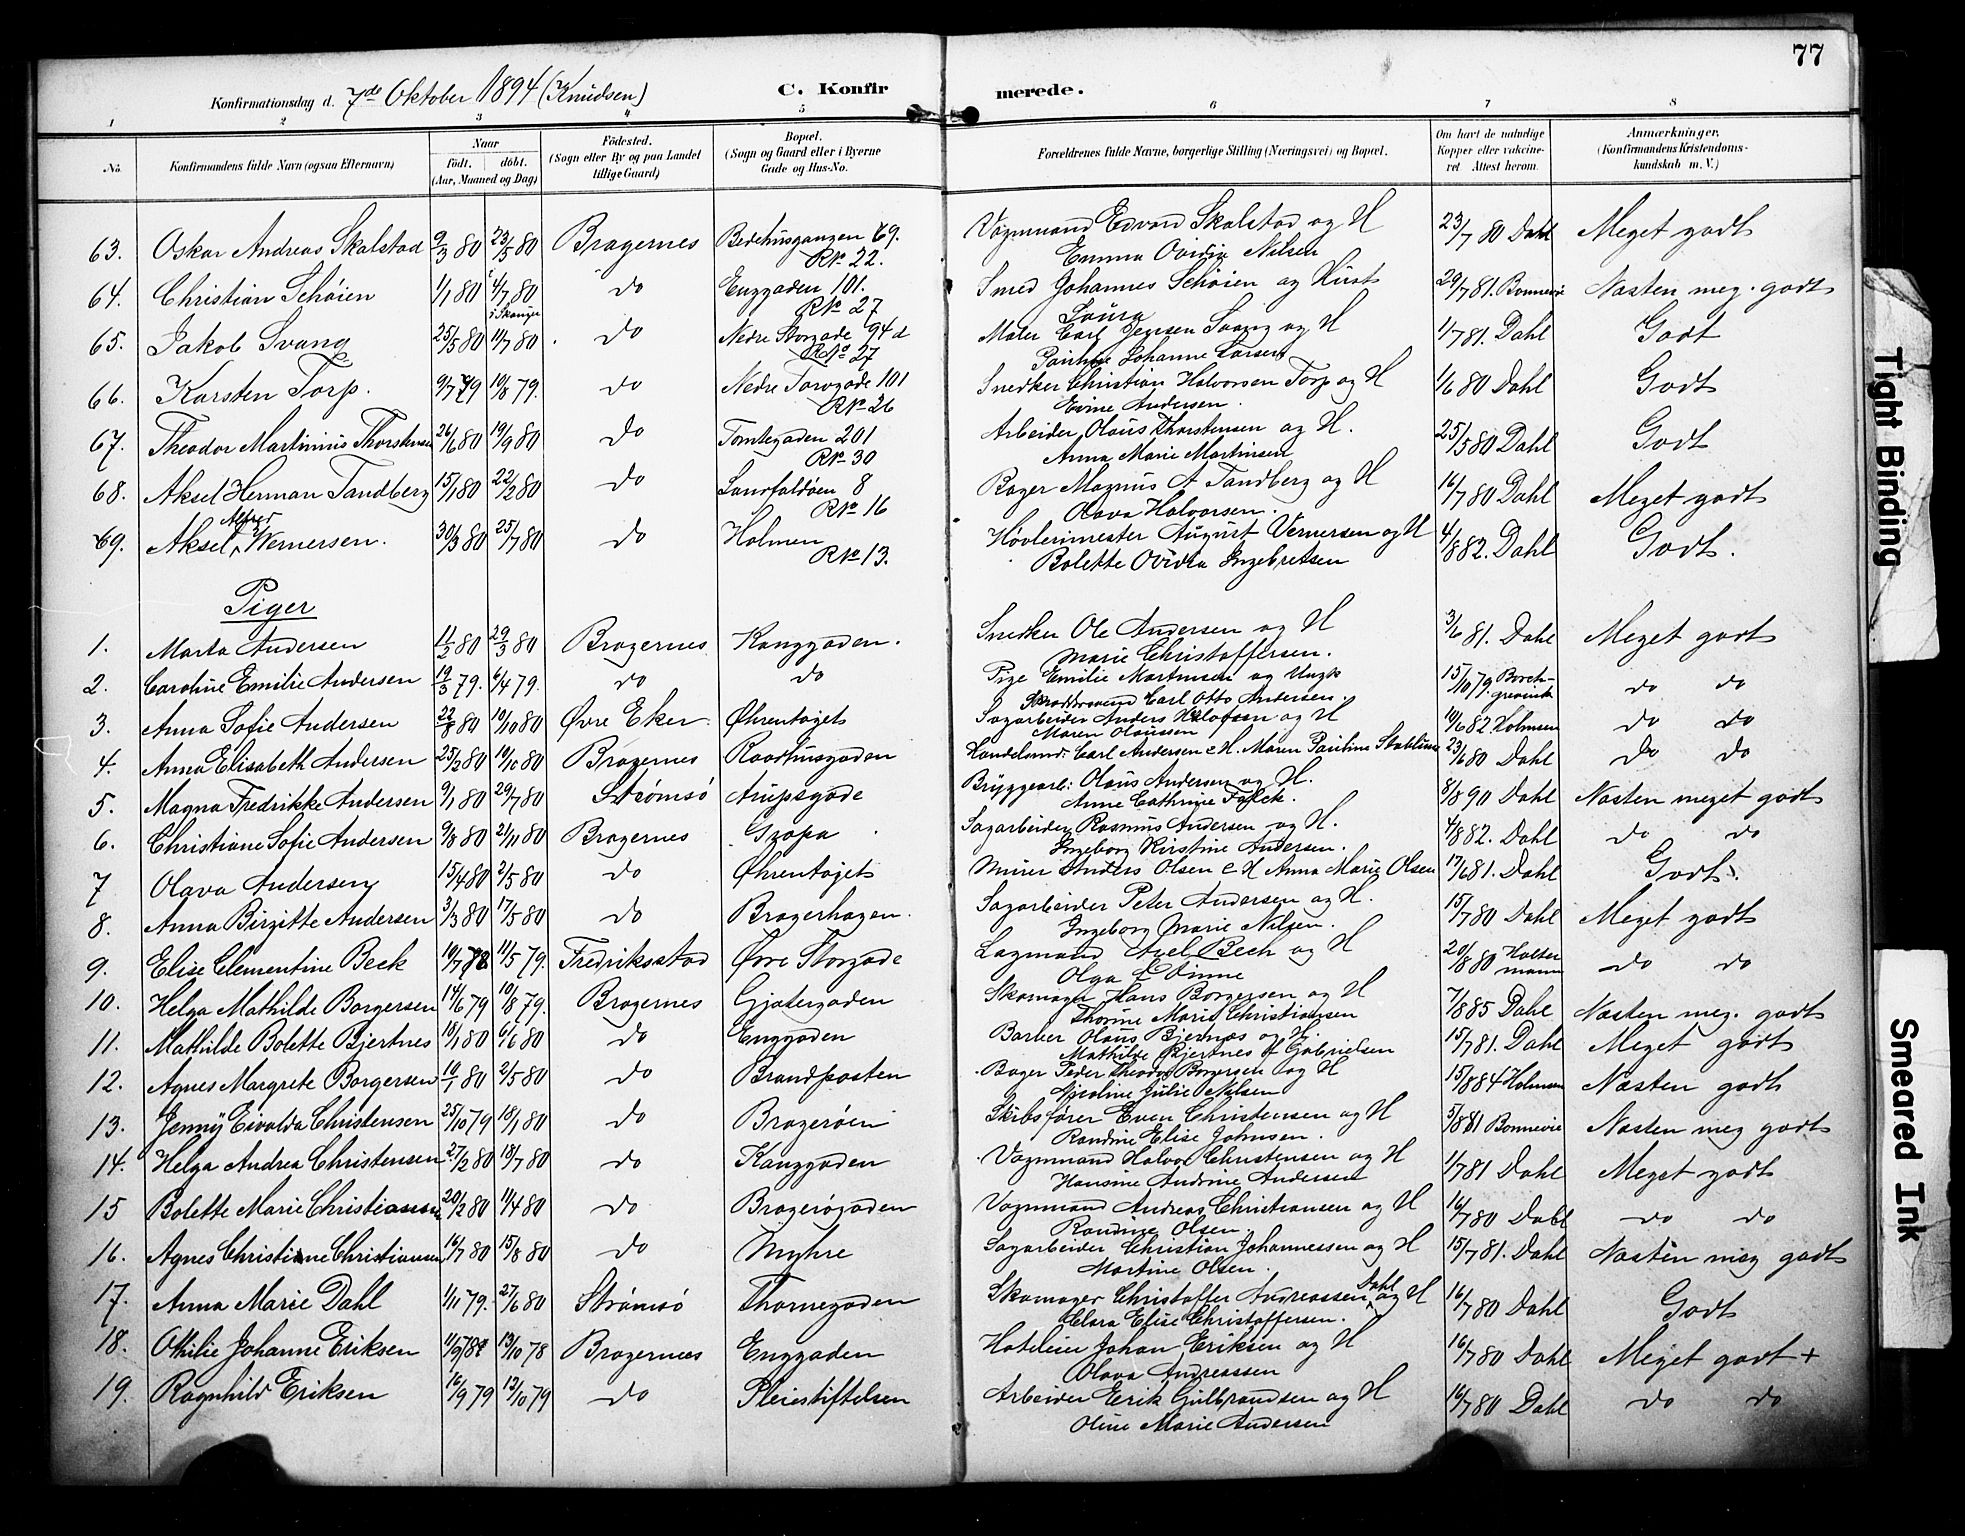 77
Konfirmationsdag d. 7de Oktober 1894 (Knudsen) C. Konfirmerede.
1 2 3 4 5 6 7 8
No. Konfirmandens fulde Navn (ogsaa Efternavn) Naar födt. döbt. (Aar, Maaned og Dag) Födested. (Sogn eller By og paa Landet tillige Gaard) Bopæl. (Sogn og Gaard eller i Byerne Gade og Hus-No. Forældrenes fulde Navne, borgerlige Stilling (Næringsvei) og Bopæl. Om havt de naturlige Kopper eller vaccineret Attest herom. Anmærkninger. (Konfirmandens Kristendomskundskab m. V.)
63. Oskar Andreas Skalstad 9/3 80 23/5 80 Bragernes Bedehusgangen 69. Vognmand Edvard Skalstad og H 23/7 80 Dahl Meget godt
RNo 22. Emma Ovidia Nilsen
64. Christian Schøien 1/1 80 4/7 80 do Enggaden 101. Smed Johannes Schøien og Hust 29/7 81. Bonnevie Næsten meg. godt
i Skoger RNo 27 Laura
65. Jakob Svang 25/5 80 11/7 80 do Nedre Storgade 94 d Maler Carl Svang og H 1/7 81. Dahl Godt
RNo 27 Johanne Larsen
66. Karsten Torp. 9/7 79 10/8 79. do Nedre Torvgade 101 Snedker Christian Halvorsen Torp og H 1/6 80 Dahl Godt
RNo 26 Andersen.
67. Theodor Martinius Thorstensen 26/6 80 19/9 80 do Tomtegaden 201 Arbeider Olaus Thorstensen og H. 25/5 80 Dahl Godt
RNo 30 Anna Marie Martinsen
68. Aksel Herman Tandberg 15/1 80 22/2 80 do Landfaldøen 8 Bager Magnus A Tandberg og H 16/7 80 Dahl Meget godt
RNo 16 Olava Halvorsen.
69. Aksel Alfred Wernersen. 30/3 80 25/7 80 do Holmen Høvlerimester August Vernersen og H 4/8 82. Dahl Godt.
RNo 13. Bolette Ovidia Ingebretsen
Piger
1. Marta Andersen 11/2 80 29/3 80 Bragernes Konggaden. Snedker Ole Andersen og H 3/6 81. Dahl Meget godt
Marie Christoffersen.
2. Caroline Emilie Andersen 19/3 79. 6/4 79. do do Pige Emilie Martinsen og Ungk 15/10 79. Borchgrevink do do
Carl Otto Andersen.
3. Anna Sofie Andersen 22/8 80 10/10 80 Øvre Eker Øhrentøjet Sagarbeider Anders Olafsen og H 10/6 82 Holmsen do do
Maren Olaussen
4. Anna Elisabeth Andersen 25/2 80 10/10 80 Bragernes Raadhusgaden Handelsmd: Carl Andersen & H. Maren Pauline 23/6 80 Dahl do do
5. Magna Fredrikke Andersen 9/1 80 29/7 80 Strømsø Arupsgade Bryggearb: Olaus Andersen og H. 8/8 90 Dahl Næsten meget godt
Anne Cathrine Falck.
6. Christiane Sofie Andersen 9/8 80 21/11 80 Bragernes Gropa Sagarbeider Rasmus Andersen og H. 4/8 82. Dahl do do
Ingeborg Kirstine Andersen.
7 Olava Andersen 15/4 80 2/5 80 do Øhrentøjet Murer Anders Olsen & H Anna Marie Olsen 17/6 81. Dahl Godt.
8. Anna Birgitte Andersen 3/3 80 17/5 80 do Bragerhagen. Sagarbeider Peter Andersen og H. 15/7 80 Dahl Meget godt
Ingeborg Marie Nilsen.
9. Elise Clementine Beck 10/7 78 11/5 79. Fredriksstad Øvre Storgade Axel Bech og H 20/8 80 Holtermann do do
Olga
10. Helga Mathilde Borgersen 14/6 79 10/8 79. Bragernes Gjætergaden Skomager Hans Borgersen og H 7/8 85 Dahl Næsten meg. godt
Thorine Marie Christiansen
11. Mathilde Bolette Bjertnes 18/1 80 6/6 80 do Enggaden Barber Olaus Bjertnæs og H. 15/7 81. Dahl Meget godt
Mathilde Bjertnes f Gabrielsen
12. Agnes Margrete Borgersen 10/1 80 2/5 80 do Brandposten Bager Peder Theodor Borgersen og H 15/8 84 Holman Næsten godt
Nicoline Julie Nilsen
13. Jenny Eivalda Christensen 25/10 79 18/1 80 do Bragerøen Skibsfører Even Christensen og H 5/8 81 Bonnevie Næsten meg godt
Randine Elise Johnsen.
14. Helga Andrea Christensen 27/2 80 18/7 80 do Konggaden Vognmand Halvor Christensen og H 1/7 81 Dahl Meget godt
Hansine Andrine Andersen
15 Bolette Marie Christiansen 20/2 80 11/4 80 do Bragerøgaden Vognmand Andreas Christiansen og H 16/7 80 Dahl do do
Randine Olsen.
16. Agnes Christiane Christiansen 16/7 80 15/8 80 do Myhre Sagarbeider Christian Johannessen og H 15/7 81. Dahl Næsten meg godt
Martine Olsen.
17. Anna Marie Dahl 1/11 79. 27/6 80 Strømsø Thornegaden Skomager Christoffer Andreassen Dahl og H 16/7 80 Dahl Godt
Clara Elise Christoffersen.
18. Othilie Johanne Eriksen 11/9 78 13/10 78 Bragernes Enggaden Johan Eriksen og H 16/7 80 Dahl Meget godt +
Olava Andreassen
19. Ragnhild Eriksen 16/9 79 12/10 79 do Pleiestiftelsen Arbeider Erik Gulbrandsen og H 16/7 80 Dahl do do
Oline Marie Andersen
Tight Binding
Smeared Ink